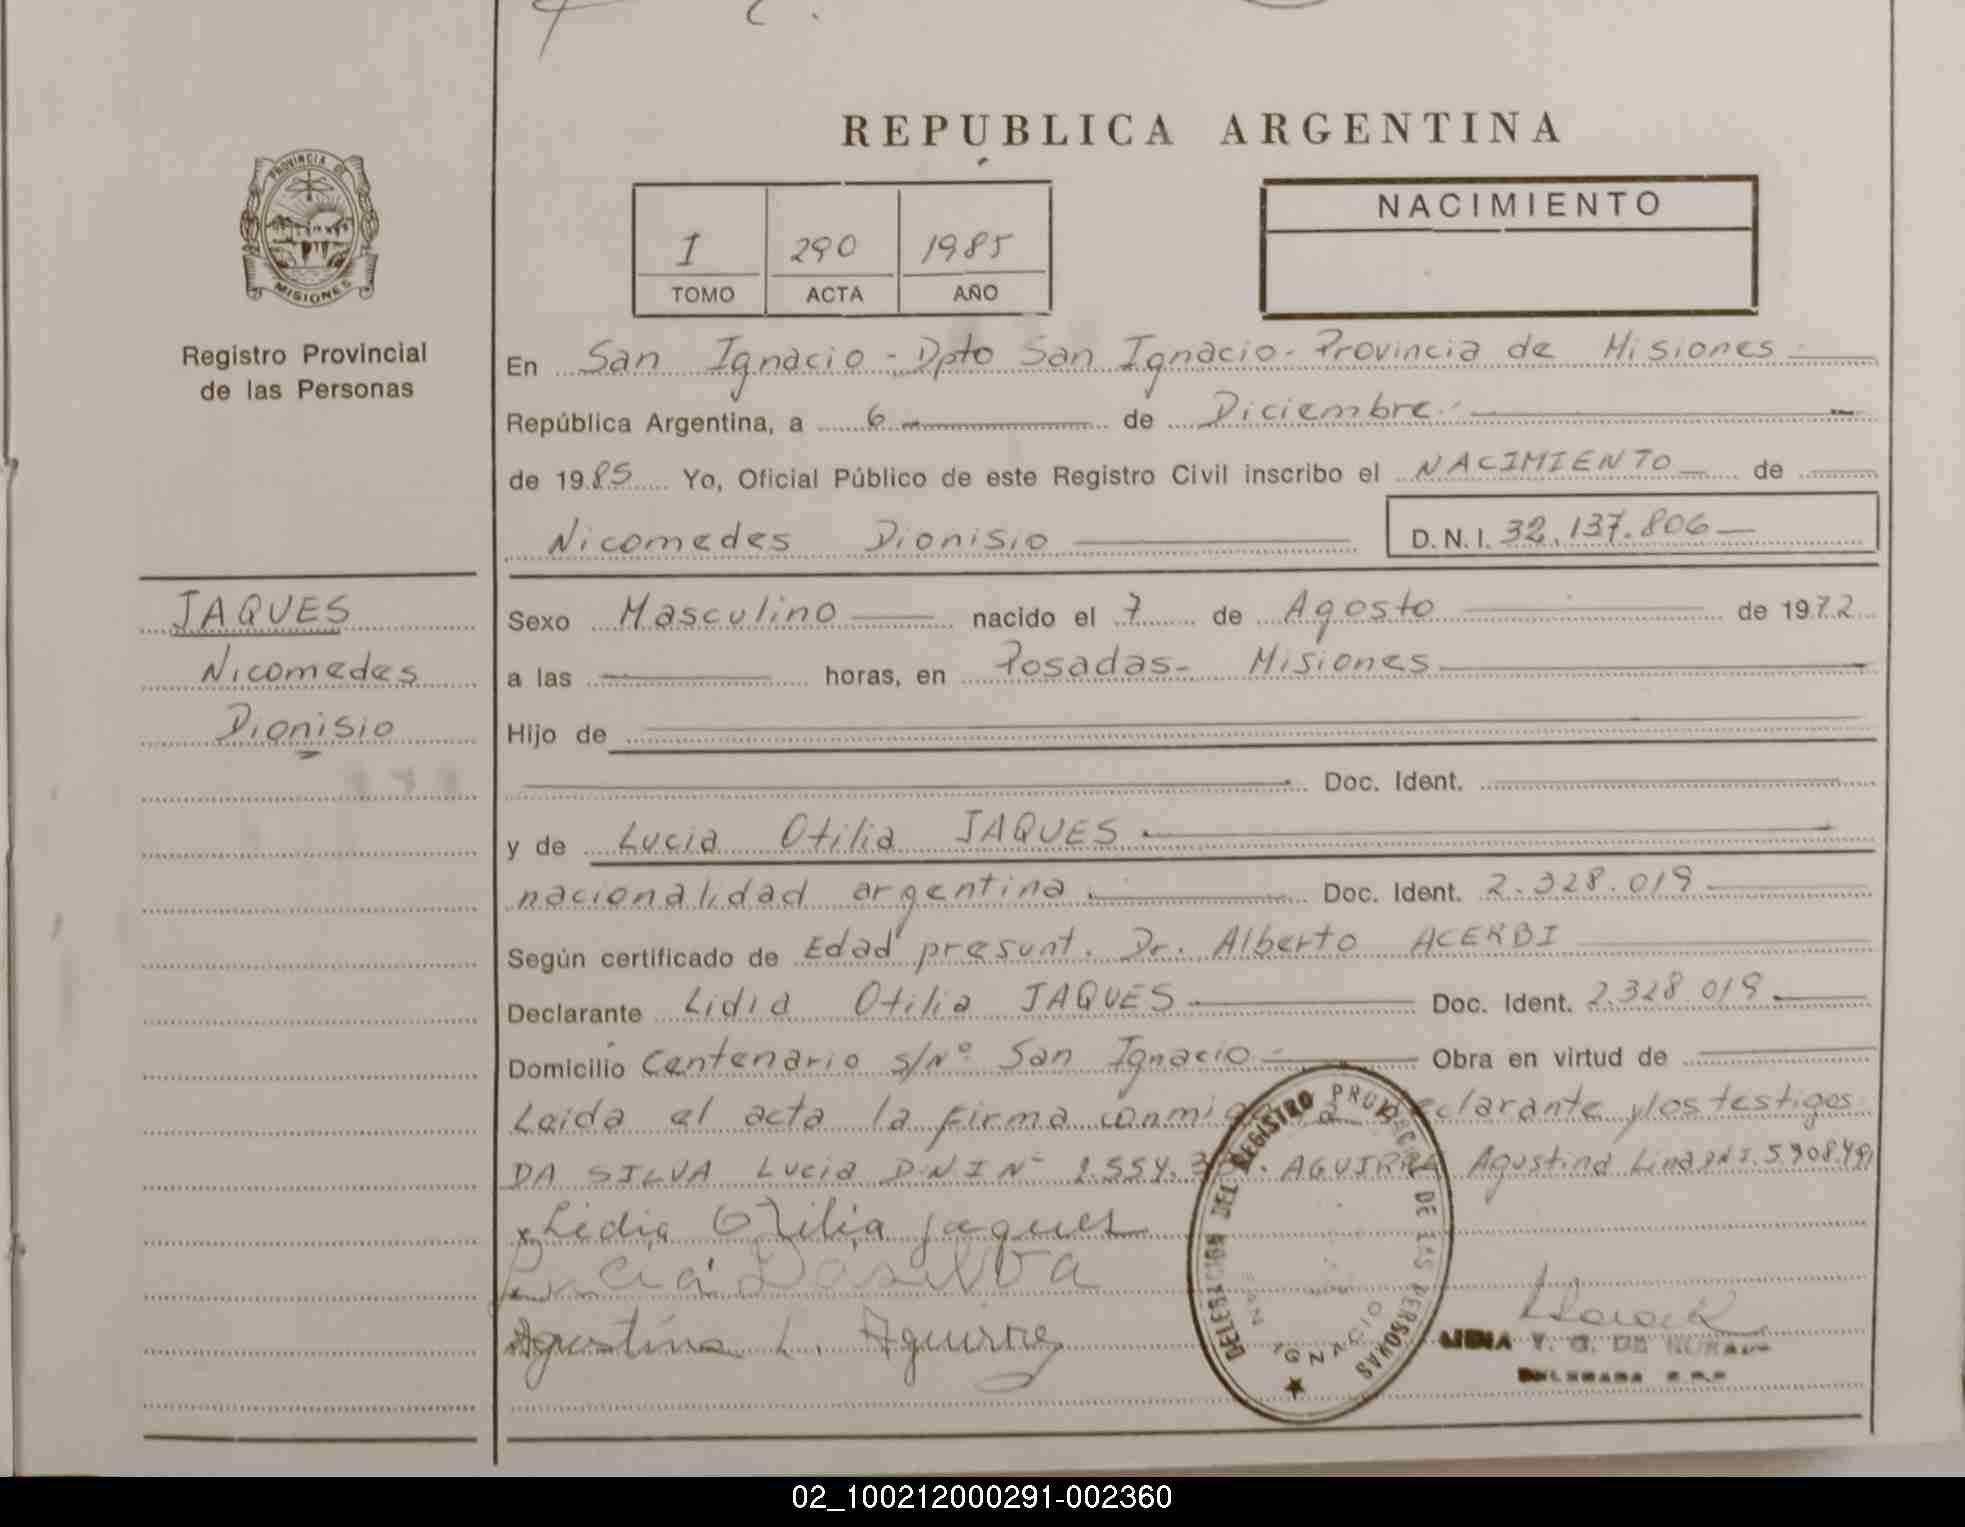 REPUBLICA ARGENTINA
PROVINCIA DE
MISIONES
Registro Provincial
de las Personas
I 290 1985
TOMO ACTA AÑO
NACIMIENTO
En San Ignacio - Dpto San Ignacio - Provincia de Misiones
República Argentina, a 6 de Diciembre
de 1985 Yo, Oficial Público de este Registro Civil inscribo el NACIMIENTO de
Nicomedes Dionisio D. N. I. 32.137.806
JAQUES
Nicomedes
Dionisio
Sexo Masculino nacido el 7 de Agosto de 1972
a las horas, en Posadas - Misiones
Hijo de
Doc. Ident.
y de Lucia Otilia JAQUES
nacionalidad argentina Doc. Ident. 2.328.019
Según certificado de Edad presunt. Dr. Alberto ACERBI
Declarante Lidia Otilia JAQUES Doc. Ident. 2.328.019
Domicilio Centenario s/Nº San Ignacio - Obra en virtud de
Leida el acta la firma y los testigos
DA SILVA Lucia D.N.I Nº AGUIRRE Agustina Lina
x Lidia Otilia Jaques
Lucia Da silva
Agustina L. Aguirre
REGISTRO PROVINCIAL DE LAS PERSONAS
SAN IGNACIO
02_100212000291-002360